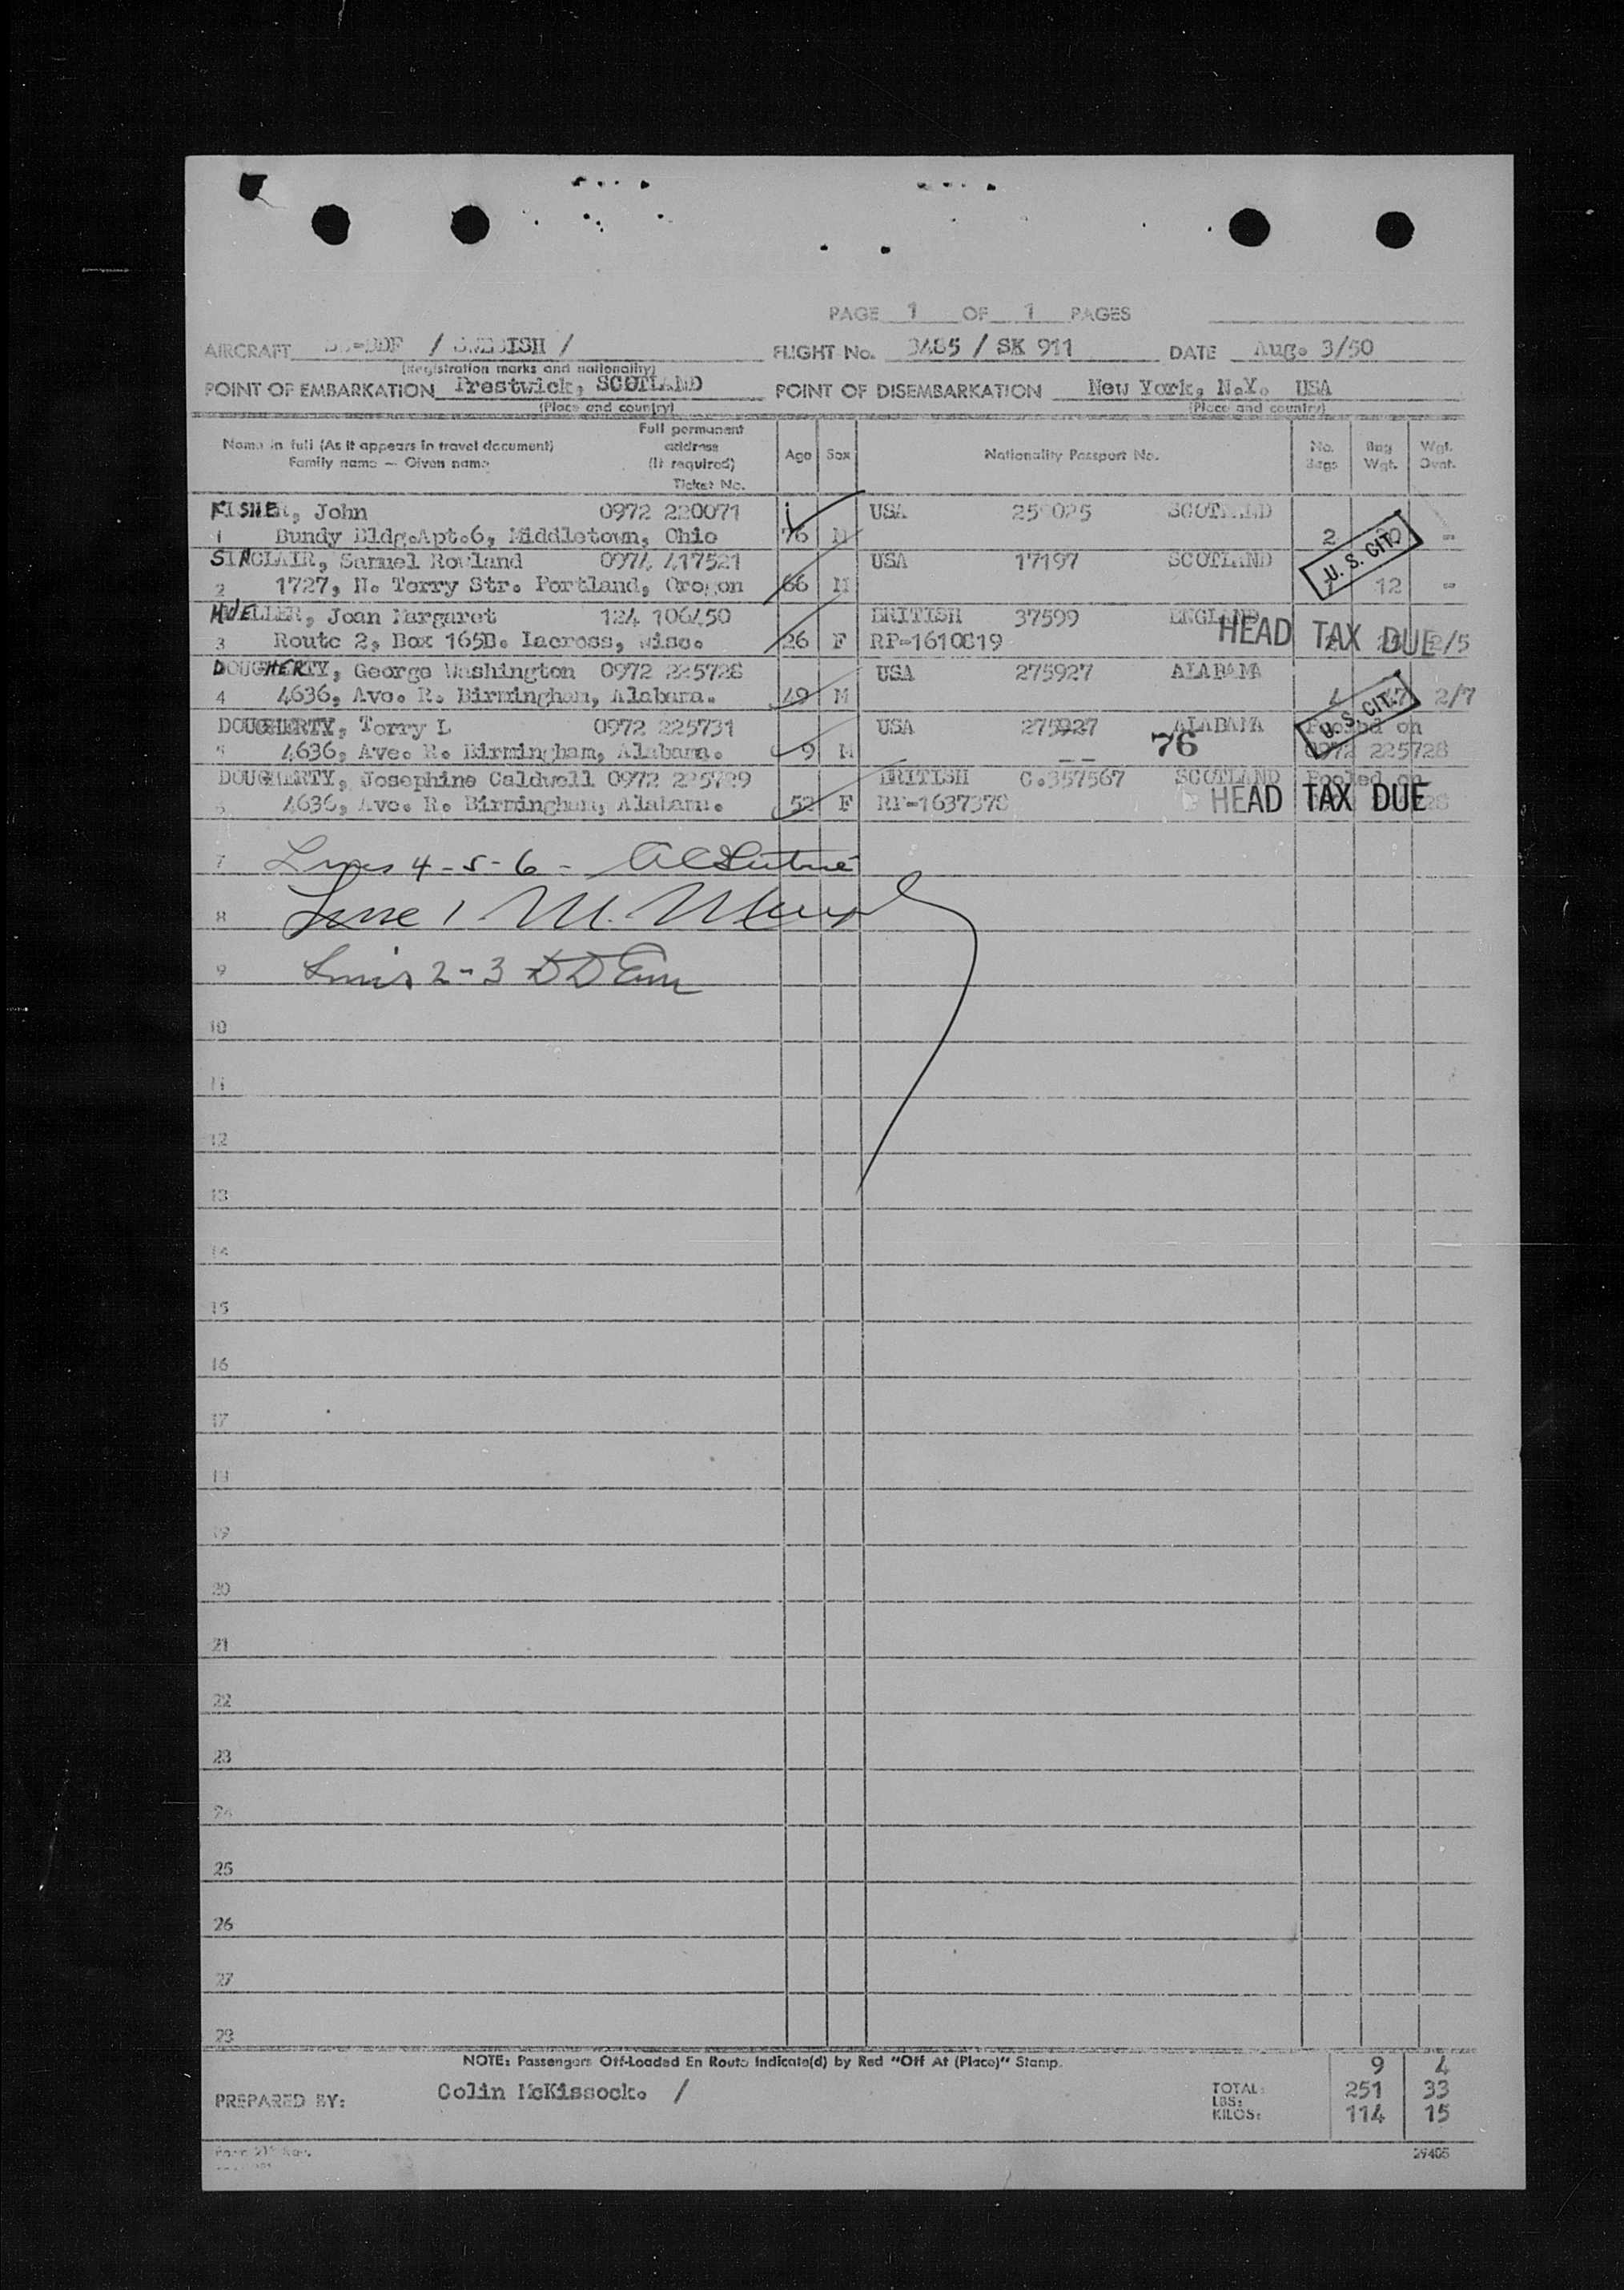 PAGE 1 OF 1 PAGES
AIRCRAFT / SWEDISH / FLIGHT No. 3485 / SK 911 DATE Aug. 3/50
(Registration marks and nationality)
POINT OF EMBARKATION Prestwick, SCOTLAND POINT OF DISEMBARKATION New York, N.Y. USA
(Place and country) (Place and country)
Name in full (As it appears in travel document) Family name — Given name Full permanent address (If required) Ticket No. Age Sex Nationality Passport No. No. Bags Bag Wgt. Wgt. Ovnt.
FISHER, John 0972 220071 USA SCOTLAND
1 Bundy Bldg.Apt.6, Middletown, Ohio 76 M 2 -
U. S. CIT.
SINCLAIR, Samuel Rowland 0974 417521 USA 17197 SCOTLAND
2 1727, N. Terry Str. Portland, Oregon 66 M 12 -
MUELLER, Joan Margaret 124 106450 BRITISH 37599 ENGLAND
3 Route 2, Box 165B. Lacross, Wisc. 26 F RP-1610819 2/5
HEAD TAX DUE
DOUGHERTY, George Washington 0972 225728 USA 275927 ALABAMA
4 4636, Ave. R. Birmingham, Alabama. 49 M 4 2/7
U. S. CIT.
DOUGHERTY, Terry L 0972 225731 USA 275927 ALABAMA Pooled on
5 4636, Ave. R. Birmingham, Alabama. 9 M -- 76 0972 225728
DOUGHERTY, Josephine Caldwell 0972 225729 BRITISH C.357567 SCOTLAND Pooled on
6 4636, Ave. R. Birmingham, Alabama. 52 F RP-1637378
HEAD TAX DUE
7 Lines 4-5-6-
8 Line 1 M.
9 Lines 2-3
10
11
12
13
14
15
16
17
18
19
20
21
22
23
24
25
26
27
28
NOTE: Passengers Off-Loaded En Route Indicate(d) by Red "Off At (Place)" Stamp.
9 4
PREPARED BY: Colin McKissock. / TOTAL: 251 33
LBS:
KILOS: 114 15
29405